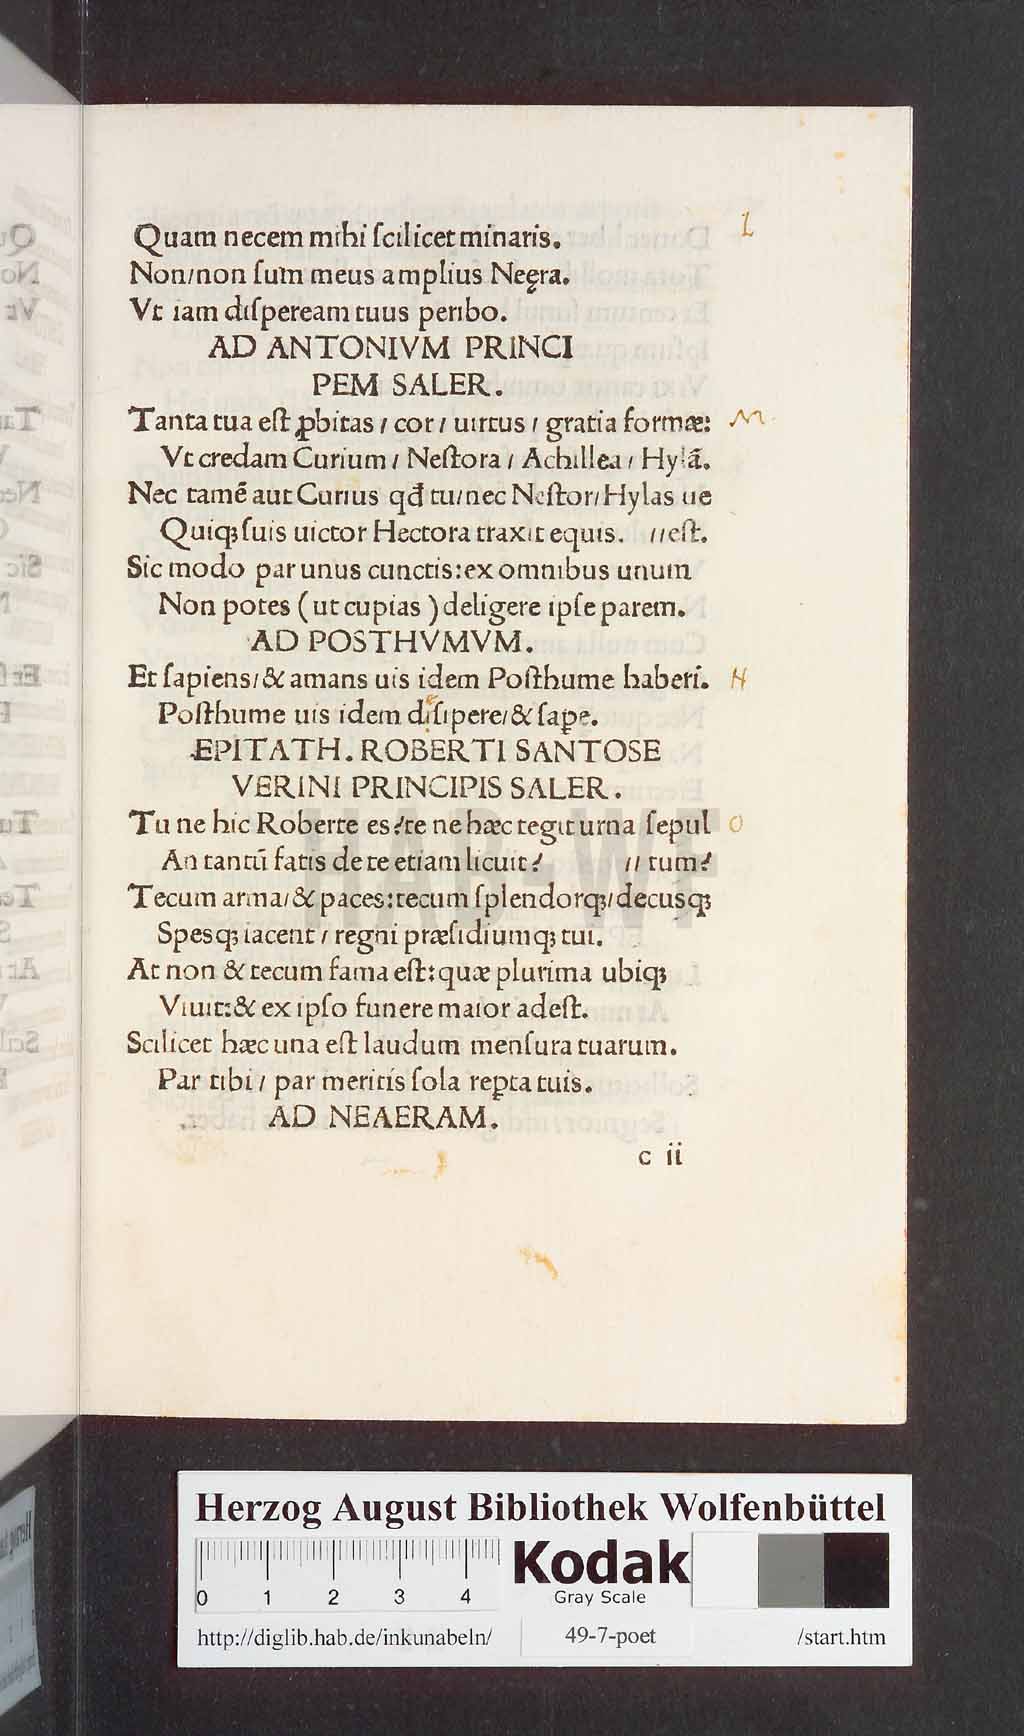 Quam necem mihi ſcilicet minaris.
Non/non ſum meus amplius Neęra.
Vt iam diſpeream tuus peribo.
AD ANTONIVM PRINCI
PEM SALER.
Tanta tua eſt ꝓbitas / cor / uirtus / gratia formæ:
Vt credam Curium / Neſtora / Achillea / Hylã.
Nec tamẽ aut Curius qđ tu/nec Neſtor/Hylas ue
Quiqꝫ ſuis uictor Hectora traxit equis. //eſt.
Sic modo par unus cunctis:ex omnibus unum
Non potes ( ut cupias ) deligere ipſe parem.
AD POSTHVMVM.
Et ſapiens/& amans uis idem Poſthume haberi.
Poſthume uis idem diſipere/& ſaꝑe.
EPITATH. ROBERTI SANTOSE
VERINI PRINCIPIS SALER.
Tu ne hic Roberte es?te ne hæc tegit urna ſepul
An tantũ fatis de te etiam licuit? // tum?
Tecum arma/& paces:tecum ſplendorqꝫ/decusqꝫ
Spesqꝫ iacent / regni præſidiumqꝫ tui.
At non & tecum fama eſt:quæ plurima ubiqꝫ
Viuit:& ex ipſo funere maior adeſt.
Scilicet hæc una eſt laudum menſura tuarum.
Par tibi / par meritis ſola reꝑta tuis.
AD NEAERAM.
c ii
L
M
N
O
HAB-WF
Herzog August Bibliothek Wolfenbüttel
0 1 2 3 4
Kodak
Gray Scale
http://diglib.hab.de/inkunabeln/ 49-7-poet /start.htm